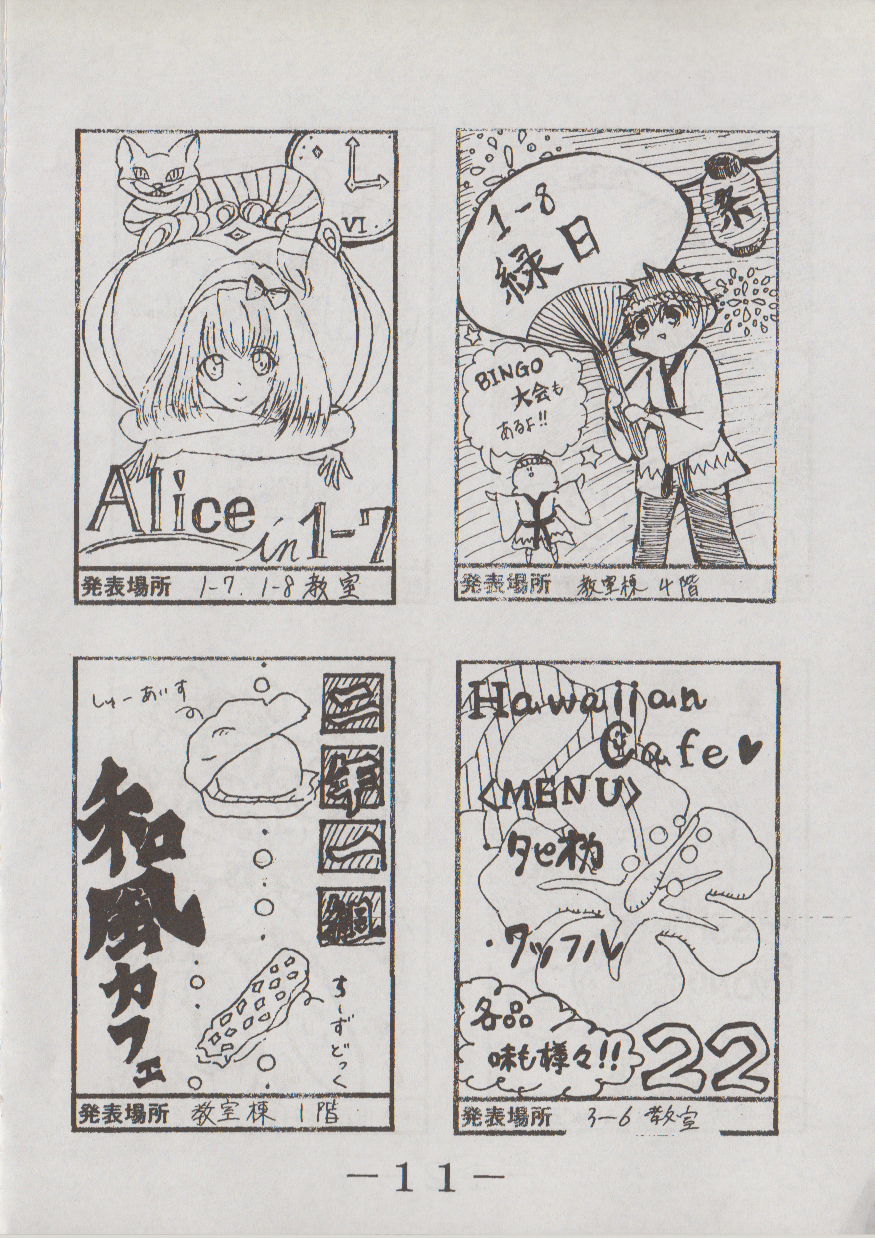 VI
Alice
in 1-7
発表場所 1-7. 1-8 教室
祭
1-8
縁日
BINGO
大会も
あるよ!!
発表場所 教室棟 4階
しゅーあいす
二年一組
和風カフェ
ちーずどっく
発表場所 教室棟 1階
Hawaiian
Cafe♥
<MENU>
・タピオカ
・ワッフル
各品
味も様々!!
22
発表場所 3-6 教室
-11-